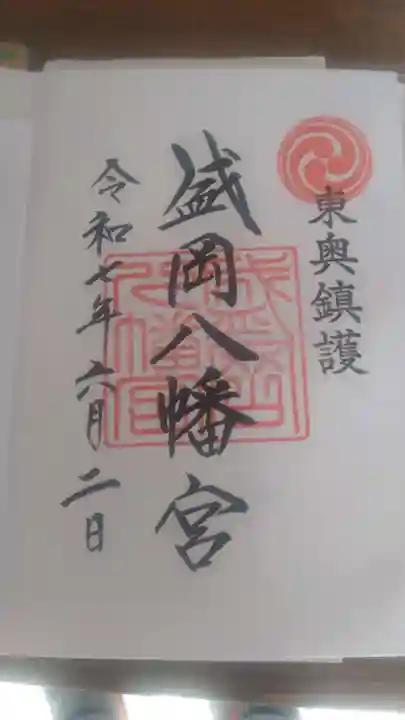 東奥鎮護
盛岡八幡宮
令和七年六月二日